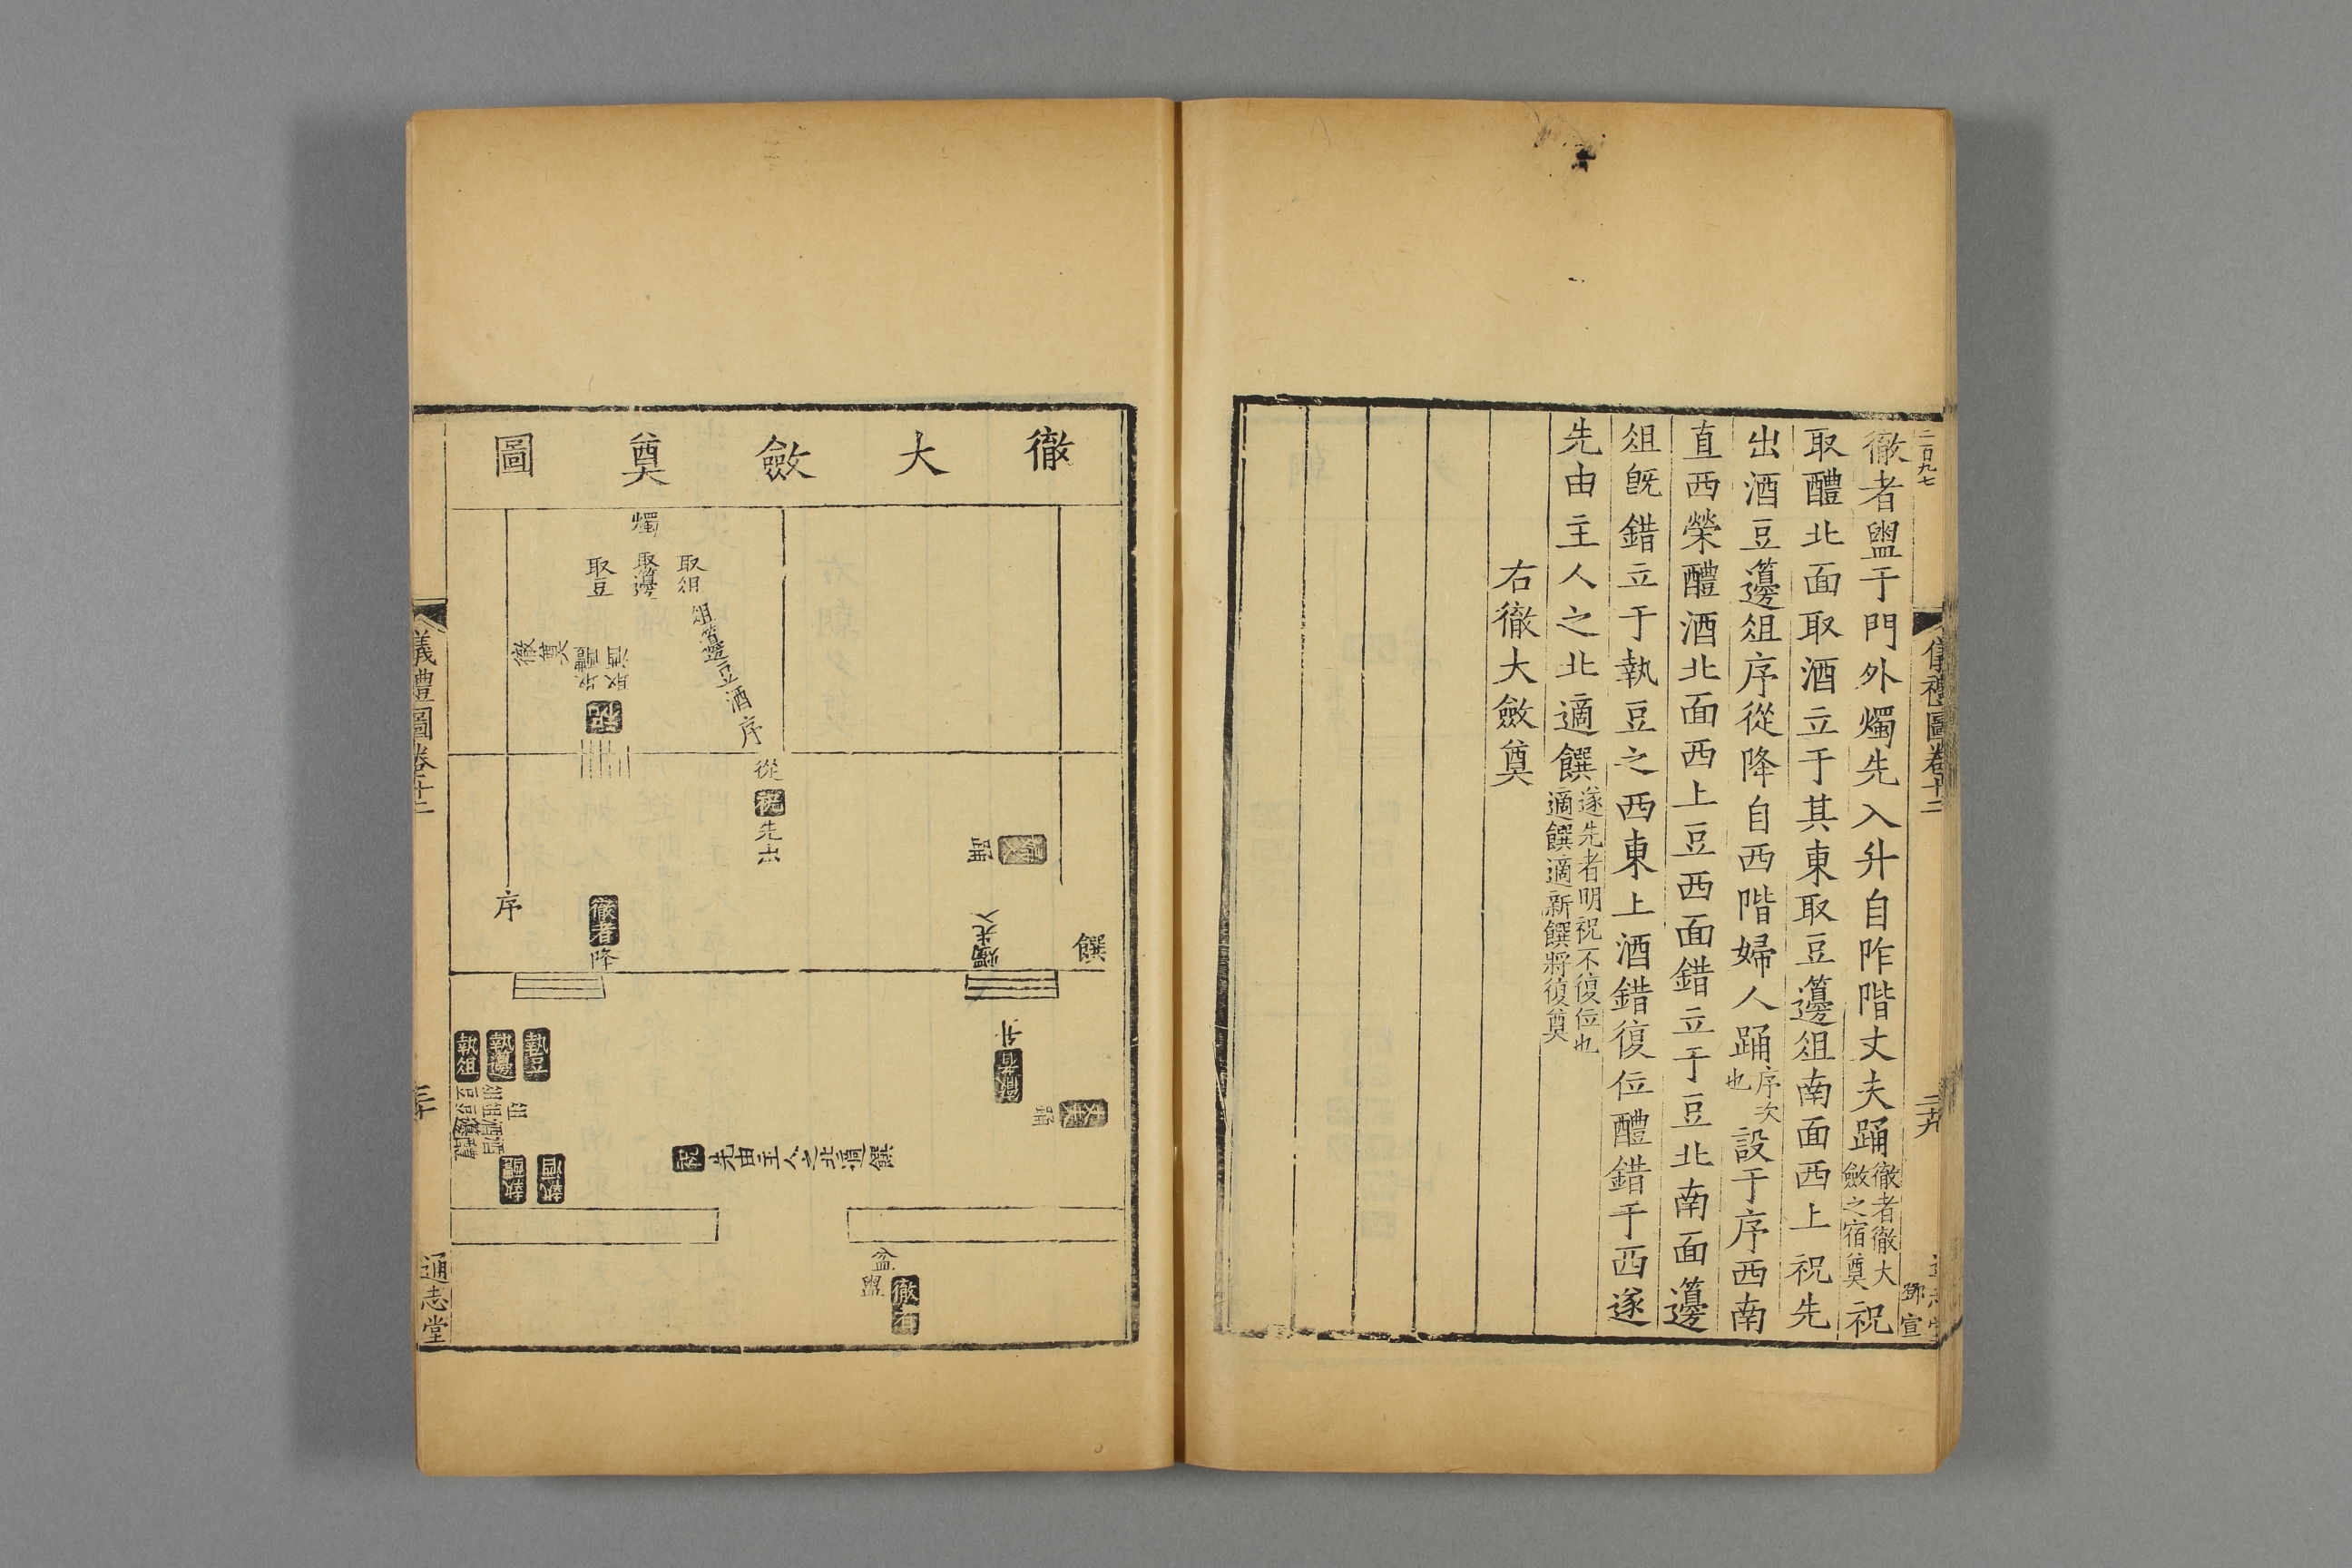 二百九七
儀禮圖卷十二
二九
鄧宣
徹者盥于門外燭先入升自阼階丈夫踊徹者徹大斂之宿奠祝
取醴北面取酒立于其東取豆籩俎南面西上祝先
出酒豆籩俎序從降自西階婦人踊序次也設于序西南
直西榮醴酒北面西上豆西面錯立于豆北南面籩
俎旣錯立于執豆之西東上酒錯復位醴錯于西遂
先由主人之北適饌遂先者明祝不復位也適饌適新饌將復奠
右徹大斂奠
徹大斂奠圖
燭
取俎
取籩
取豆
俎籩豆酒序
從
祝
先出
徹奠
取酒
取醴
祝
婦人
踊
序
徹者
降
燭先入
饌
升
徹者
丈夫
踊
執豆
執籩
執俎
執酒
執醴
祝
先由主人之北適饌
盆
盥
徹者
儀禮圖卷十二
三十
通志堂